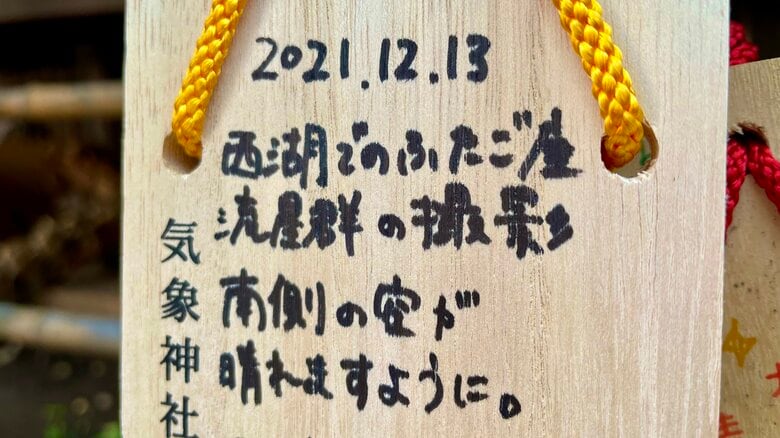 2021.12.13
西湖でのふたご座
流星群の撮影
南側の空が
晴れますように。
気象神社